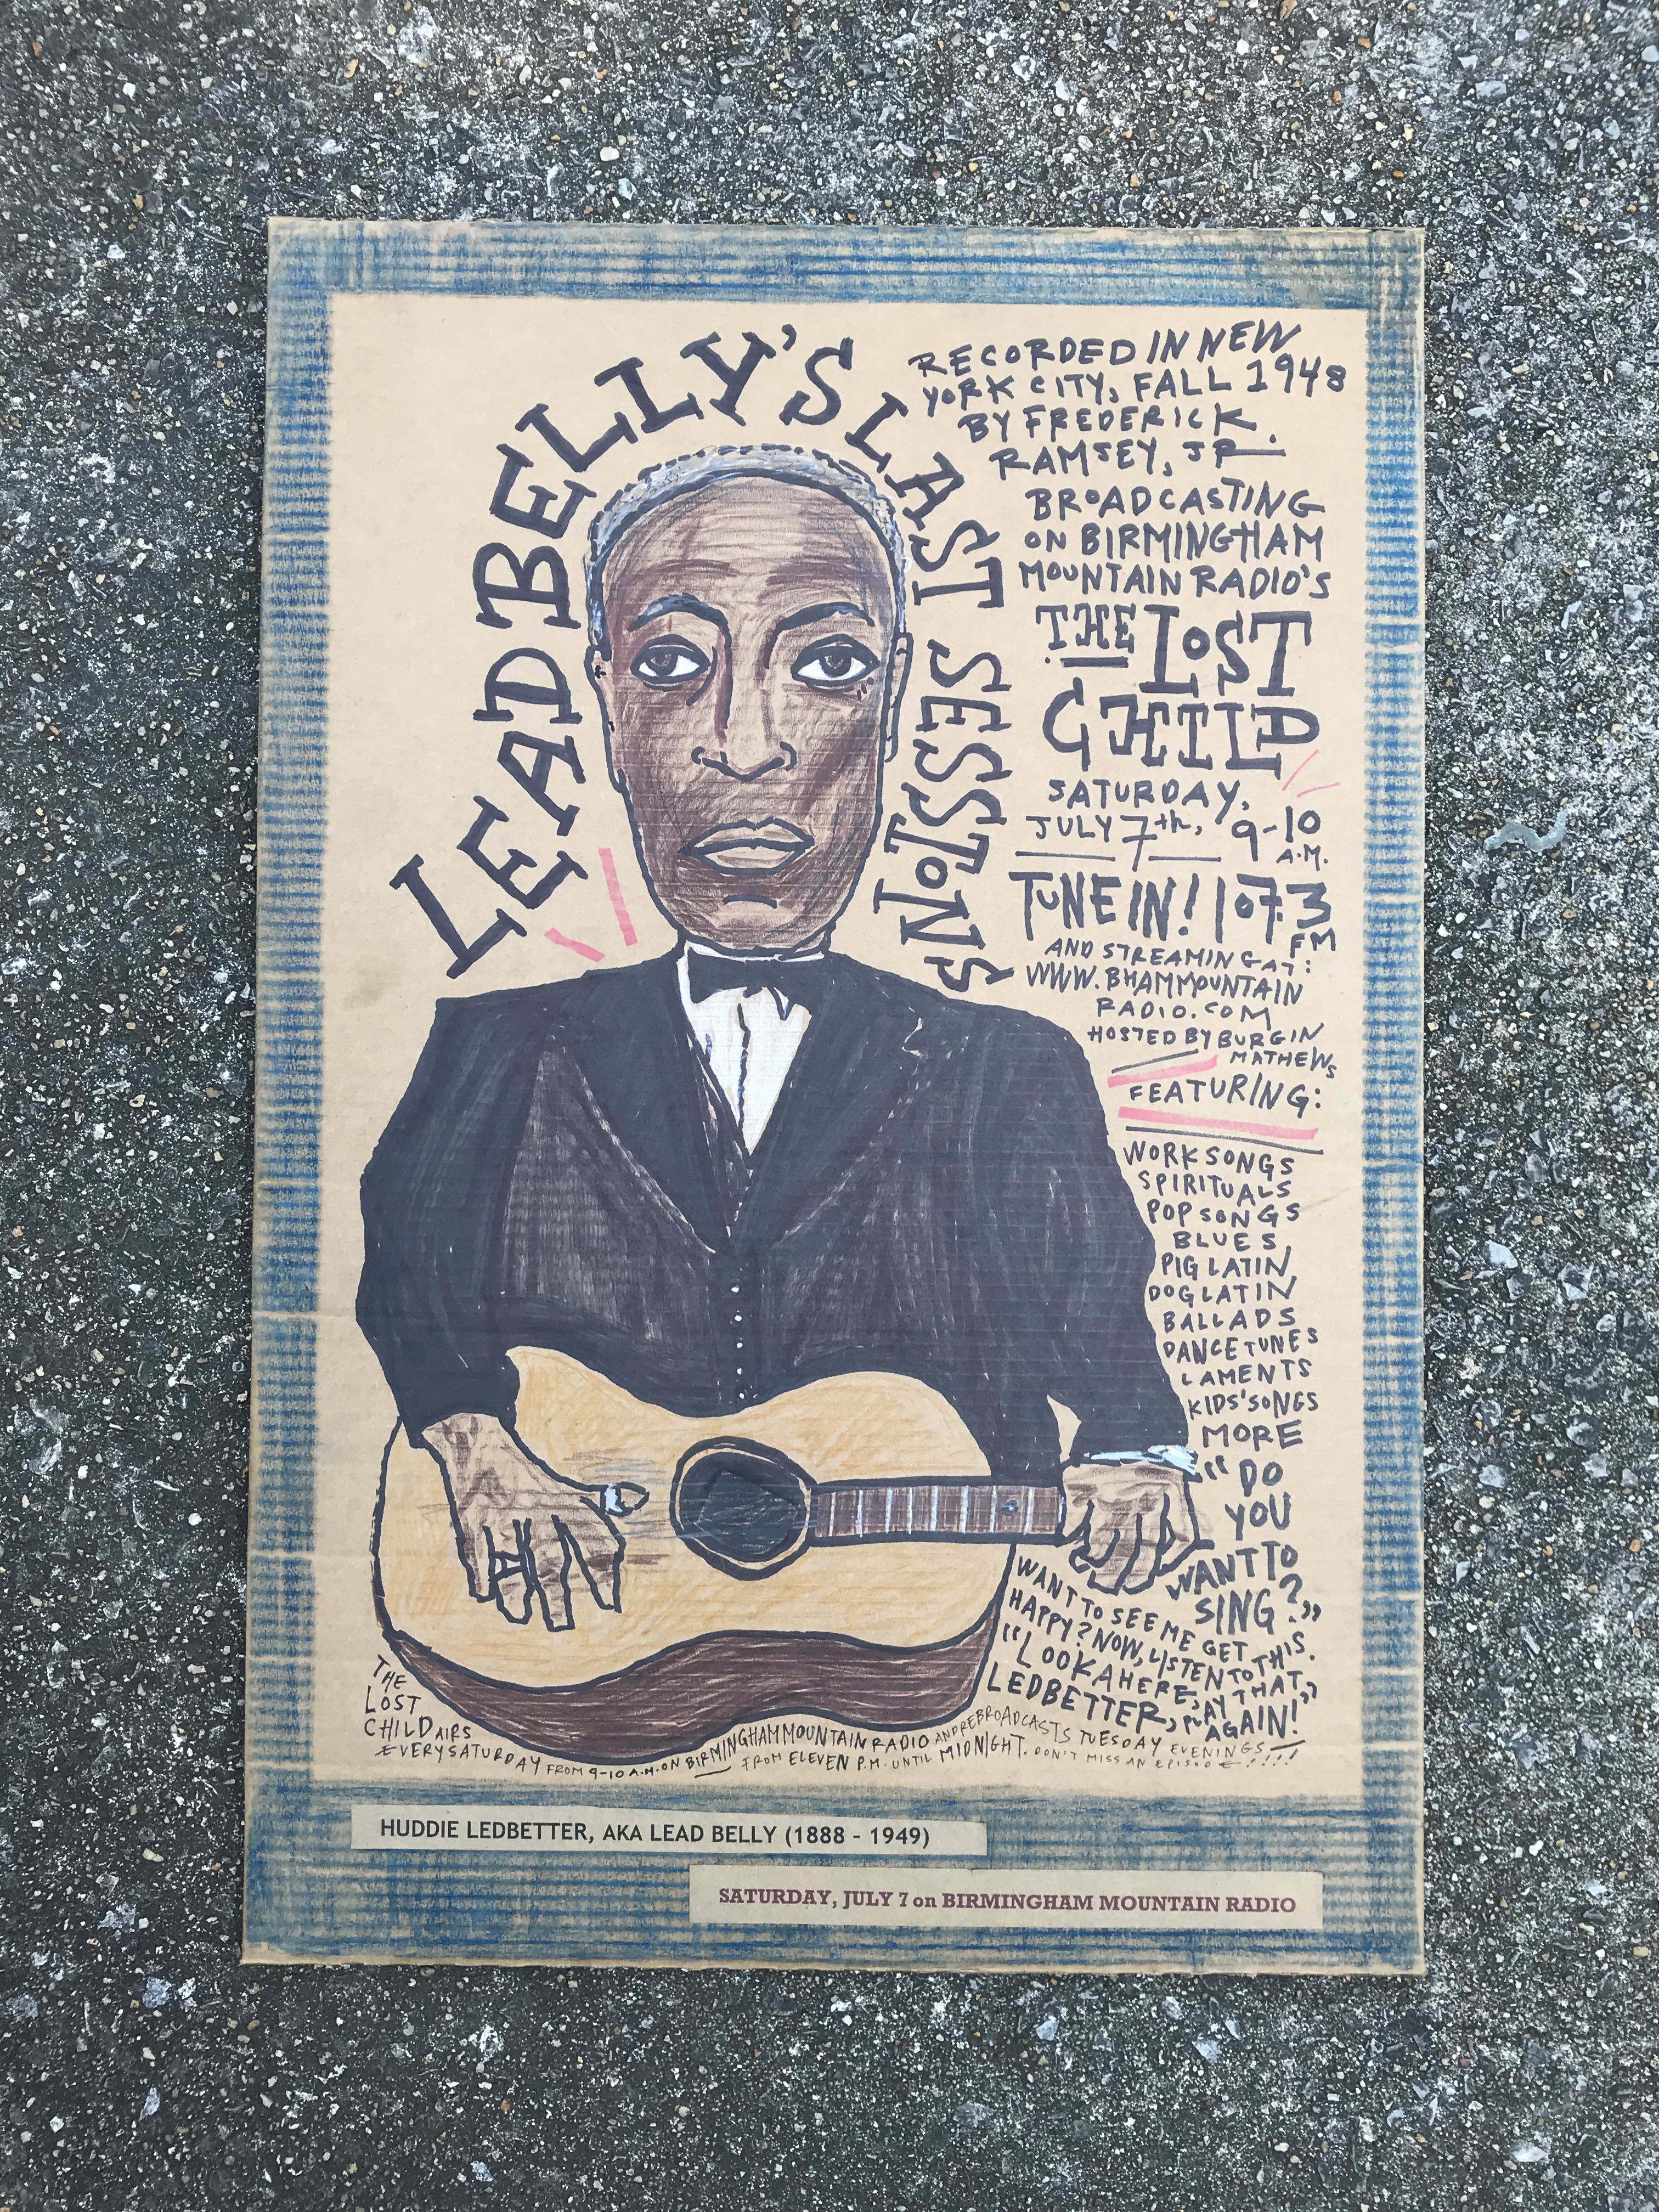 LEAD BELLY'S LAST SESSIONS
RECORDED IN NEW
YORK CITY, FALL 1948
BY FREDERICK
RAMSEY, JR.
BROADCASTING
ON BIRMINGHAM
MOUNTAIN RADIO'S
THE LOST
CHILD
SATURDAY,
JULY 7th, 9-10
A.M.
TUNE IN! 107.3
FM
AND STREAMING AT:
WWW.BHAMMOUNTAIN
RADIO.COM
HOSTED BY BURGIN
MATHEWS
FEATURING:
WORK SONGS
SPIRITUALS
POP SONGS
BLUES
PIG LATIN
DOG LATIN
BALLADS
DANCE TUNES
LAMENTS
KIDS' SONGS
MORE
"DO
YOU
WANT TO
SING?"
WANT TO SEE ME GET
HAPPY? NOW, LISTEN TO THIS.
"LOOKAHERE,
LEDBETTER, PLAY THAT AGAIN!"
THE
LOST
CHILD AIRS
EVERY SATURDAY FROM 9-10 A.M. ON BIRMINGHAM MOUNTAIN RADIO AND REBROADCASTS TUESDAY EVENINGS
FROM ELEVEN P.M. UNTIL MIDNIGHT. DON'T MISS AN EPISODE!!!!
HUDDIE LEDBETTER, AKA LEAD BELLY (1888 - 1949)
SATURDAY, JULY 7 on BIRMINGHAM MOUNTAIN RADIO